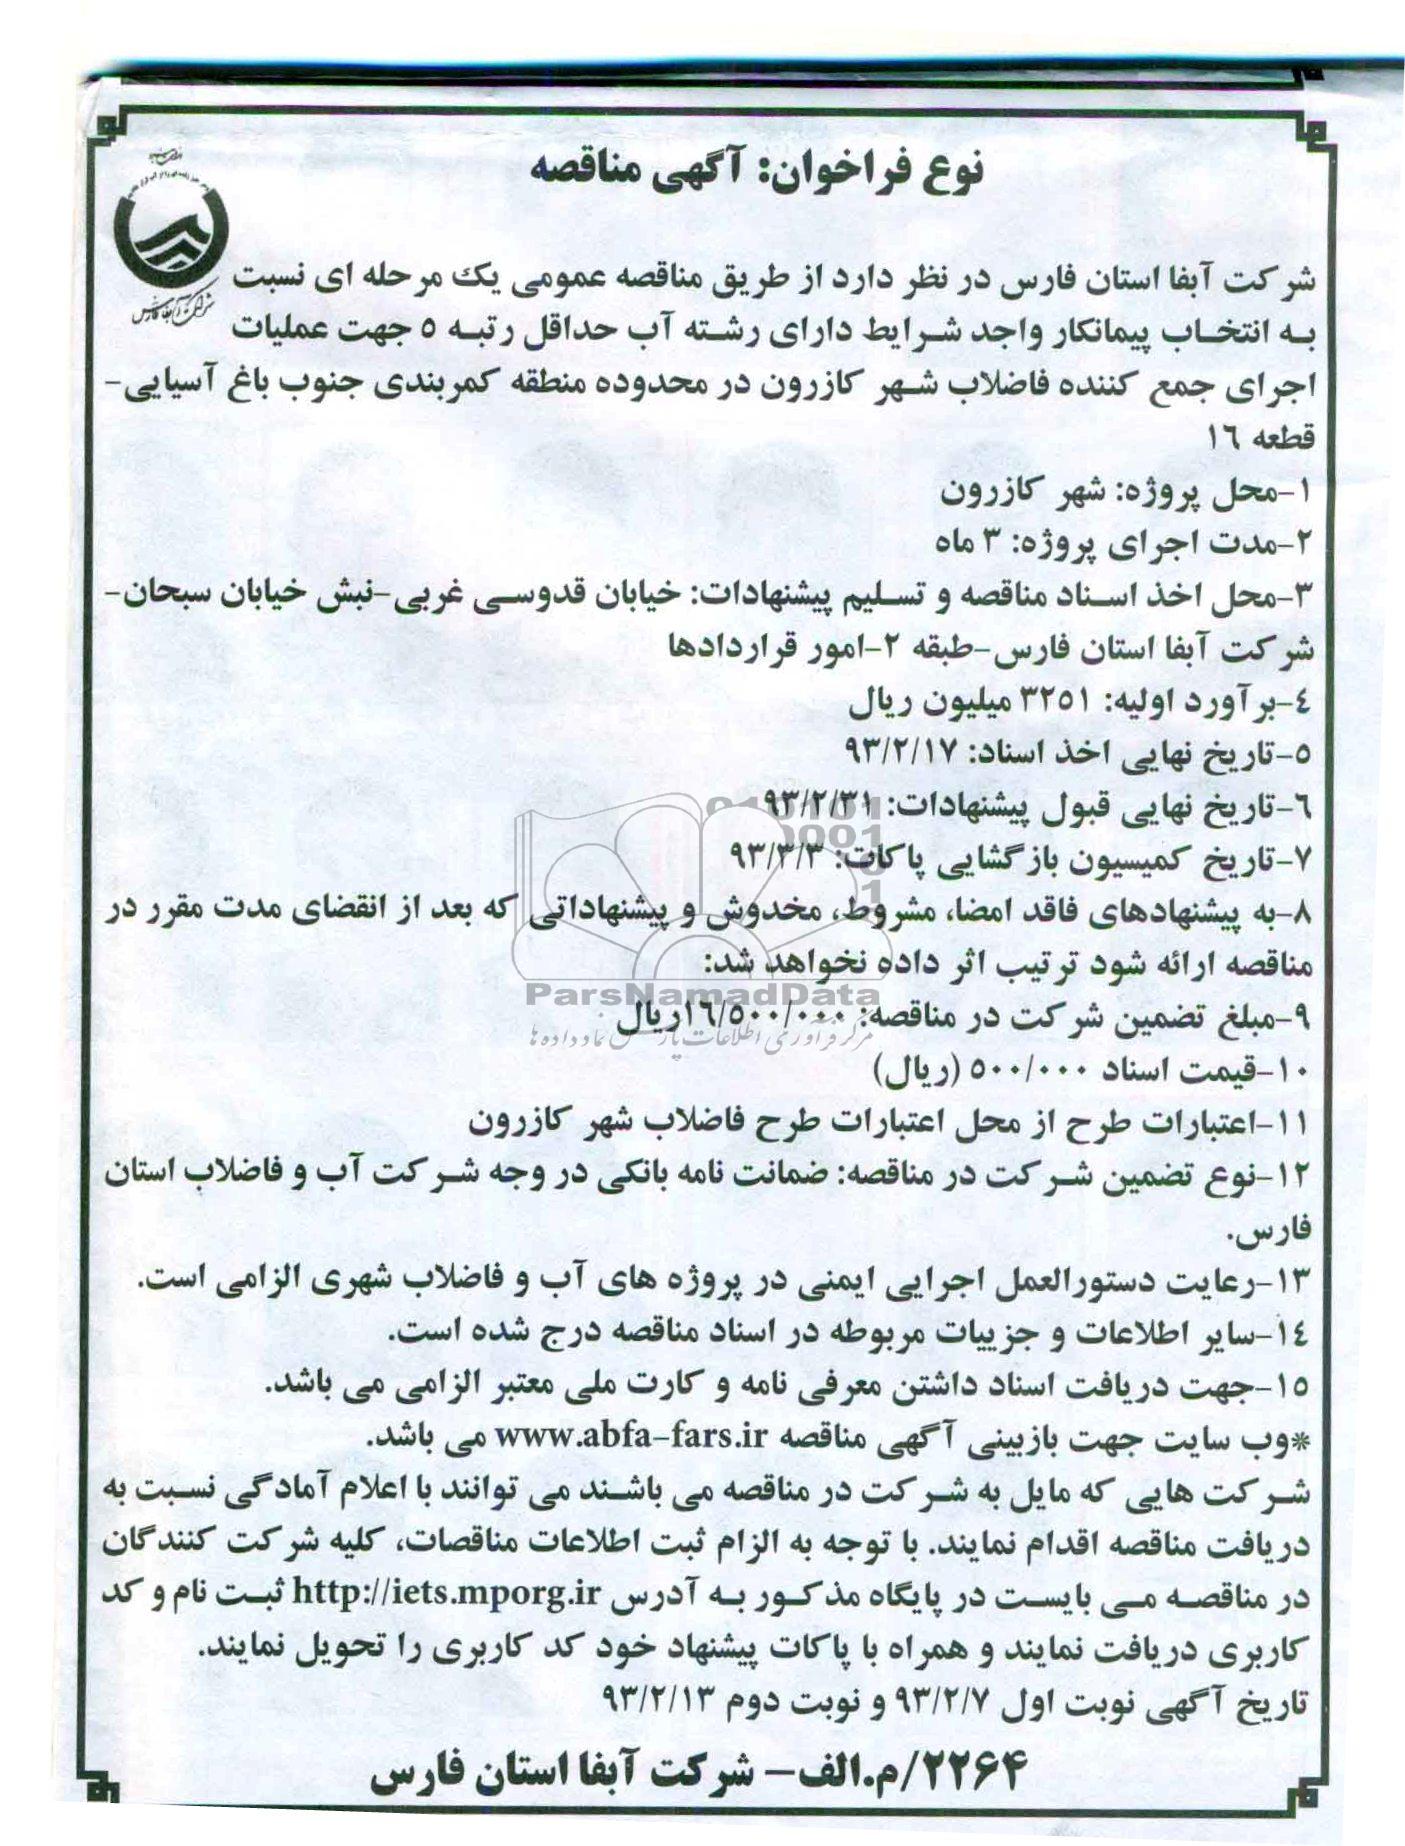 نوع فراخوان: آگهی مناقصه
شرکت آبفا استان فارس در نظر دارد از طریق مناقصه عمومی یک مرحله ای نسبت
به انتخاب پیمانکار واجد شرایط دارای رشته آب حداقل رتبه ۵ جهت عملیات
اجرای جمع کننده فاضلاب شهر کازرون در محدوده منطقه کمربندی جنوب باغ آسیایی-
قطعه ۱۶
۱-محل پروژه: شهر کازرون
۲-مدت اجرای پروژه: ۳ ماه
۳-محل اخذ اسناد مناقصه و تسلیم پیشنهادات: خیابان قدوسی غربی-نبش خیابان سبحان-
شرکت آبفا استان فارس-طبقه ۲-امور قراردادها
۴-برآورد اولیه: ۳۲۵۱ میلیون ریال
۵-تاریخ نهایی اخذ اسناد: ۹۳/۲/۱۷
۶-تاریخ نهایی قبول پیشنهادات: ۹۳/۲/۳۱
۷-تاریخ کمیسیون بازگشایی پاکات: ۹۳/۳/۳
۸-به پیشنهادهای فاقد امضا، مشروط، مخدوش و پیشنهاداتی که بعد از انقضای مدت مقرر در
مناقصه ارائه شود ترتیب اثر داده نخواهد شد:
ParsNamadData
۹-مبلغ تضمین شرکت در مناقصه: ۱۶/۵۰۰/۰۰۰ریال
مرکز فرآوری اطلاعات پارس نماد داده ها
۱۰-قیمت اسناد ۵۰۰/۰۰۰ (ریال)
۱۱-اعتبارات طرح از محل اعتبارات طرح فاضلاب شهر کازرون
۱۲-نوع تضمین شرکت در مناقصه: ضمانت نامه بانکی در وجه شرکت آب و فاضلاب استان
فارس.
۱۳-رعایت دستورالعمل اجرایی ایمنی در پروژه های آب و فاضلاب شهری الزامی است.
۱۴-سایر اطلاعات و جزییات مربوطه در اسناد مناقصه درج شده است.
۱۵-جهت دریافت اسناد داشتن معرفی نامه و کارت ملی معتبر الزامی می باشد.
*وب سایت جهت بازبینی آگهی مناقصه www.abfa-fars.ir می باشد.
شرکت هایی که مایل به شرکت در مناقصه می باشند می توانند با اعلام آمادگی نسبت به
دریافت مناقصه اقدام نمایند. با توجه به الزام ثبت اطلاعات مناقصات، کلیه شرکت کنندگان
در مناقصه می بایست در پایگاه مذکور به آدرس http://iets.mporg.ir ثبت نام و کد
کاربری دریافت نمایند و همراه با پاکات پیشنهاد خود کد کاربری را تحویل نمایند.
تاریخ آگهی نوبت اول ۹۳/۲/۷ و نوبت دوم ۹۳/۲/۱۳
۲۲۶۴/م.الف- شرکت آبفا استان فارس